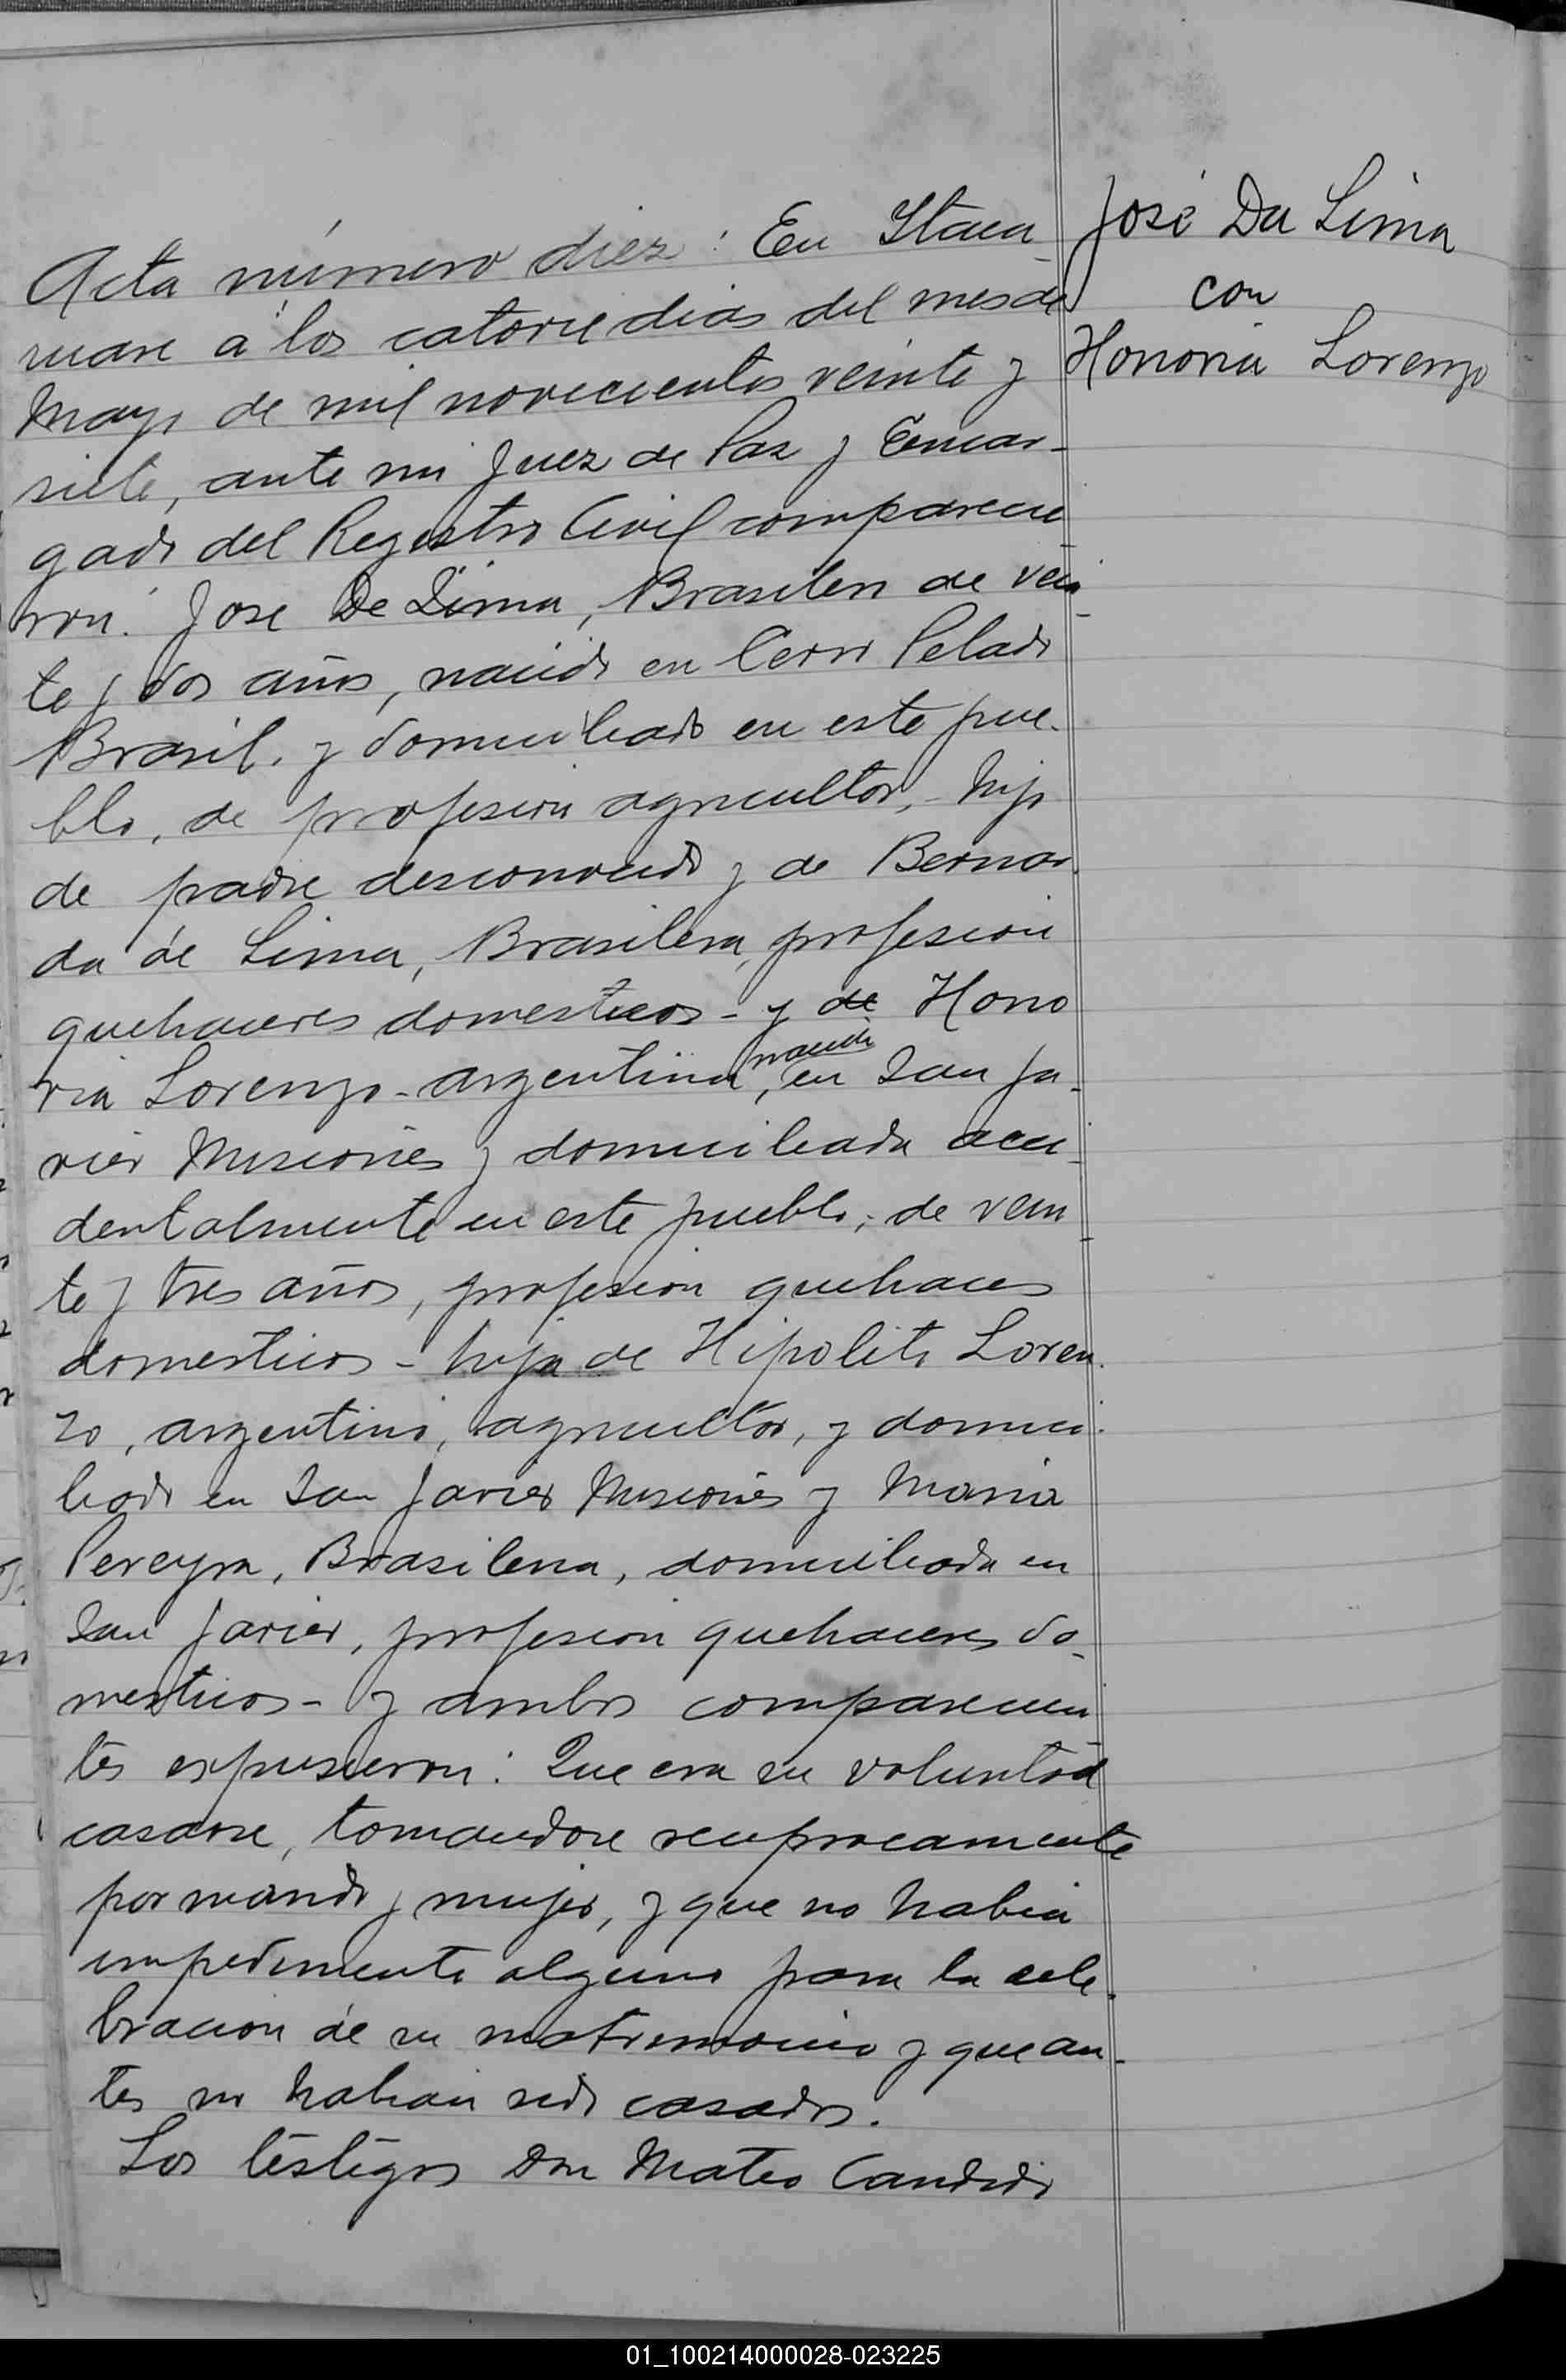 José Da Lima
con
Honoria Lorenzo
Acta número diez: En Itaca-
ruare á los catorce dias del mes de
Mayo de mil novecientos veinte y
siete, ante mi Juez de Paz y Encar-
gado del Registro Civil comparecie-
ron: Jose De Lima, Brasilero de vein-
te y dos años, nacido en Cerro Pelado
Brasil, y domiciliado en este pue-
blo, de profesion agricultor, - hijo
de padre desconocido y de Bernar-
da de Lima, Brasilera, profesion
quehaceres domesticos - y de Hono
ria Lorenzo - argentina, nacida en San Ja-
vier Misiones y domiciliada acci-
dentalmente en este pueblo, de vein-
te y tres años, profesion quehaces
domesticos - hija de Hipolito Loren-
zo, argentino, agricultor, y domici-
liado en San Javier Misiones y Maria
Pereyra, Brasilera, domiciliada en
San Javier, profesion quehaceres do-
mesticos - y ambos comparecien
tes expusieron: Que era su voluntad
casarse, tomandose reciprocamente
por marido y mujer, y que no habia
impedimento alguno para la cele-
bracion de su matrimonio y que an-
tes no habian sido casados.
Los testigos Don Mateo Candido
01_100214000028-023225